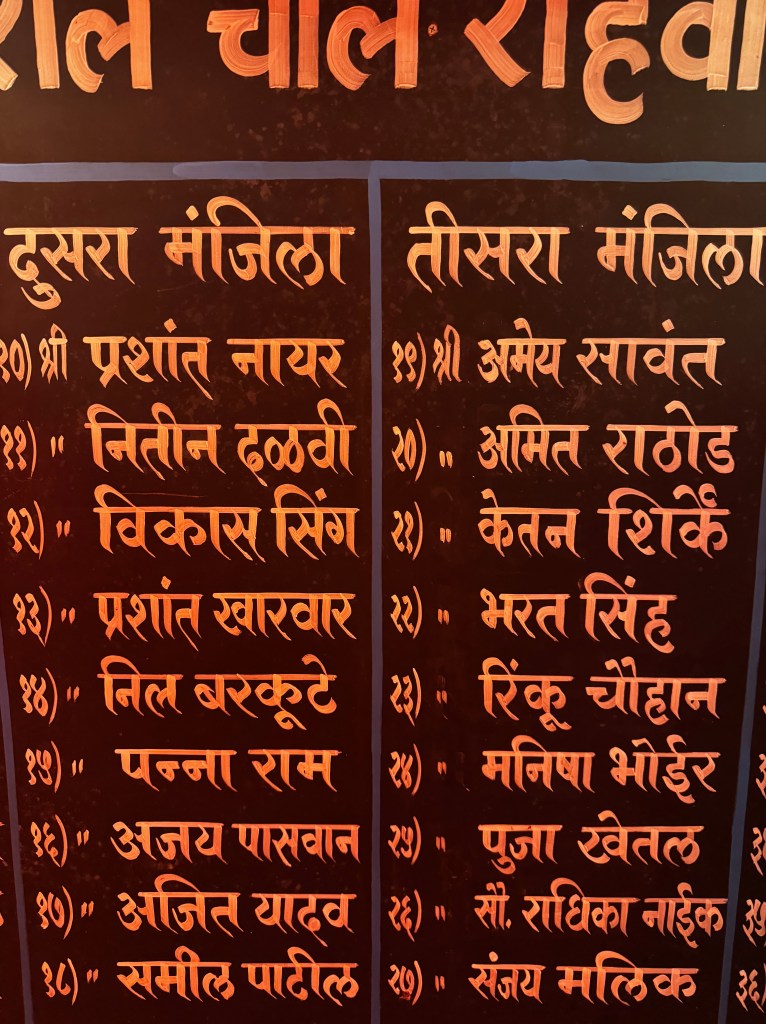 चाल राहवा
दुसरा मंजिला
१०) श्री प्रशांत नायर
११) " नितीन ढळवी
१२) " विकास सिंग
१३) " प्रशांत खारवार
१४) " निल बरकूटे
१५) " पन्ना राम
१६) " अजय पासवान
१७) " अजित यादव
१८) " समील पाटील
तीसरा मंजिला
१९) श्री अमेय सावंत
२०) " अमित राठोड
२१) " केतन शिर्के
२२) " भरत सिंह
२३) " रिंकू चौहान
२४) " मनिषा भोईर
२५) " पुजा खेतल
२६) " सौ. राधिका नाईक
२७) " संजय मलिक
३६)